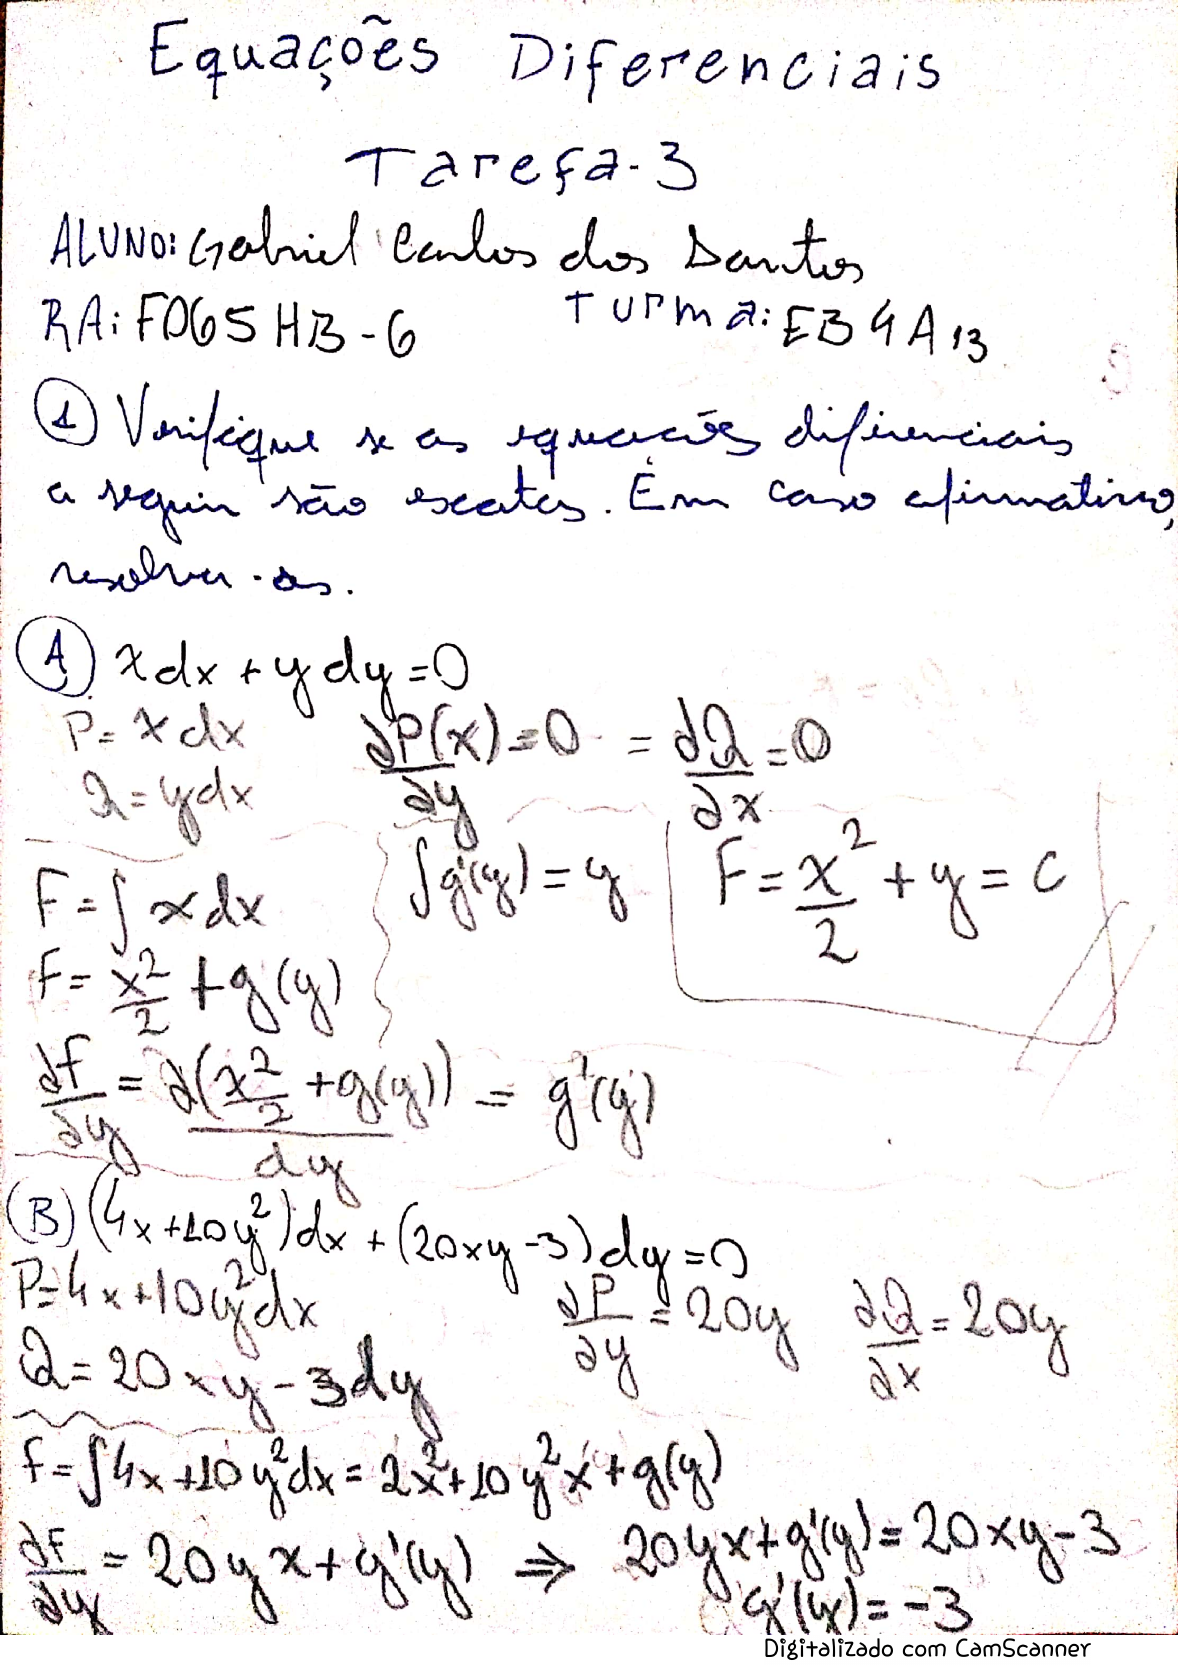 Equações Diferenciais
Tarefa-3
ALUNO: Gabriel Carlos dos Santos
RA: F065HB-6 Turma: EB4A13
1 Verifique se as equações diferenciais
a seguir são exatas. Em caso afirmativo,
resolva-as.
A) x dx + y dy = 0
P = x dx ∂P(x)/∂y = 0 = ∂Q/∂x = 0
Q = y dx
F = ∫ x dx ∫g'(y) = y F = x²/2 + y = C
F = x²/2 + g(y)
∂f/∂y = ∂(x²/2 + g(y))/dy = g'(y)
B) (4x+10y²)dx + (20xy-3)dy = 0
P = 4x+10y²dx ∂P/∂y = 20y ∂Q/∂x = 20y
Q = 20xy-3dy
f = ∫4x+10y²dx = 2x²+10y²x+g(y)
∂F/∂y = 20yx+g'(y) ⇒ 20yx+g'(y) = 20xy-3
g'(y) = -3
Digitalizado com CamScanner